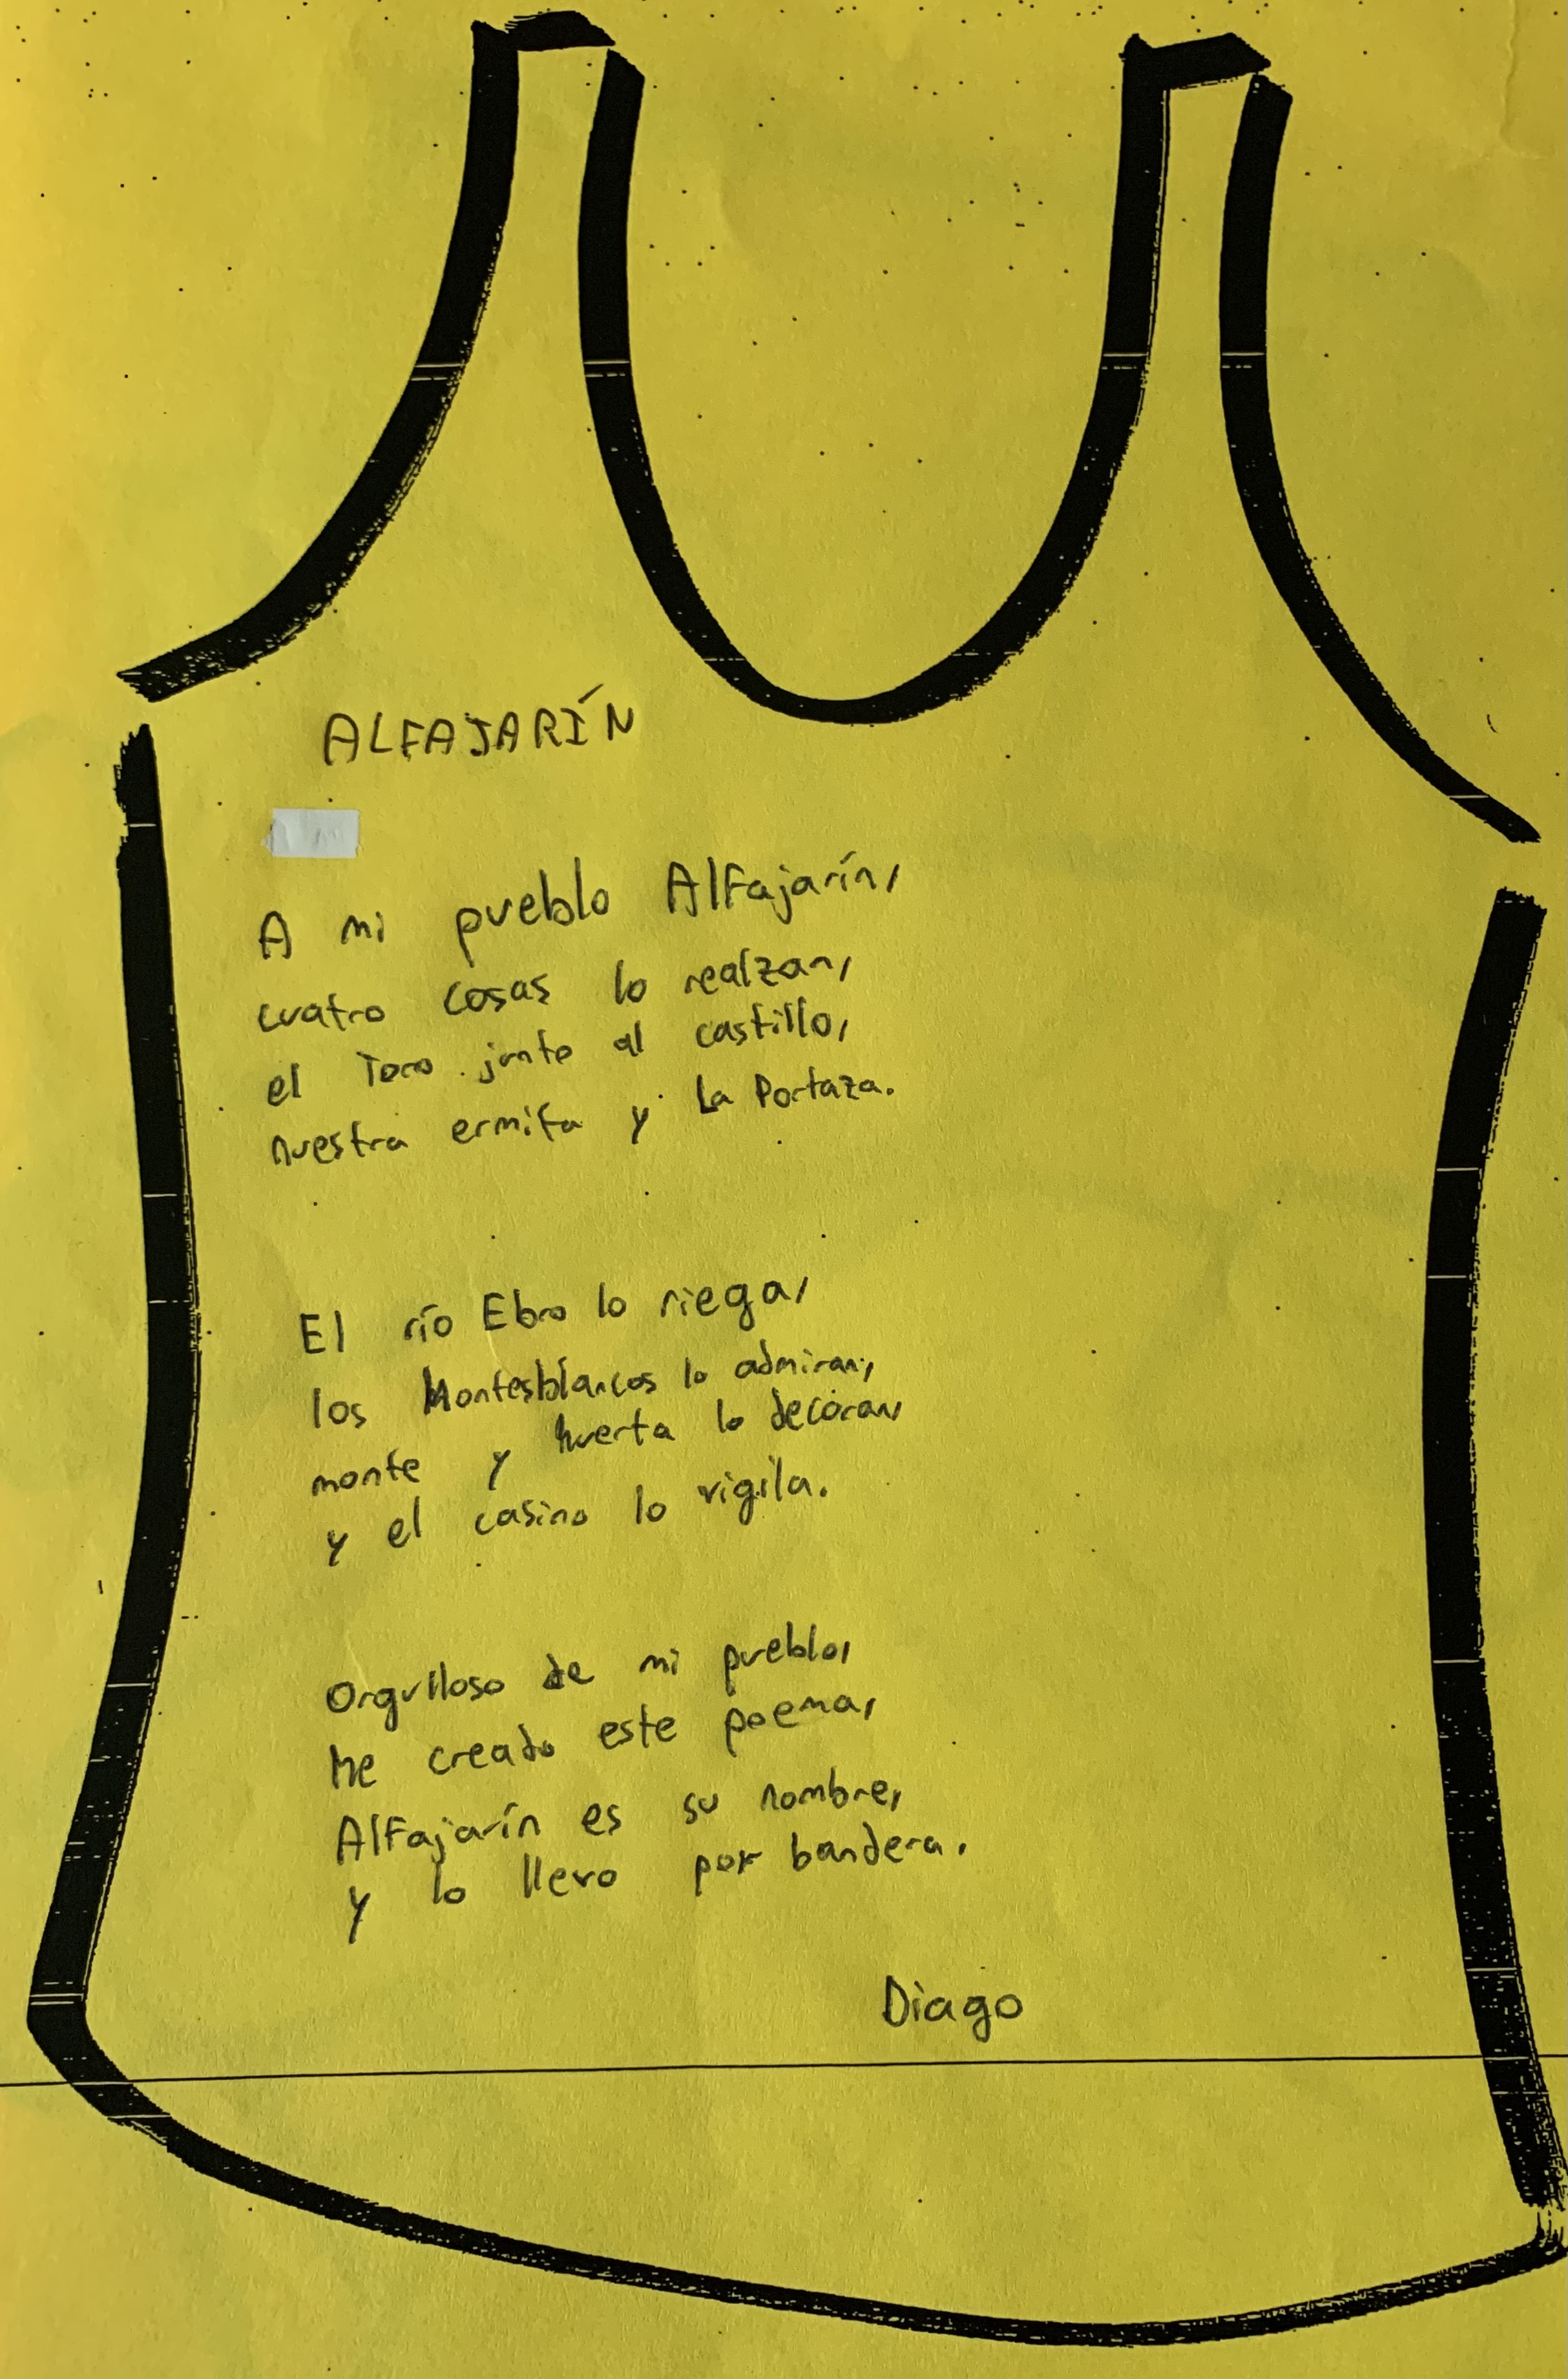 ALFAJARÍN
A mi pueblo Alfajarín,
cuatro cosas lo realzan,
el Toro junto al castillo,
nuestra ermita y La Portaza.
El río Ebro lo riega,
los Montesblancos lo admiran,
monte y huerta lo decoran,
y el casino lo vigila.
Orgulloso de mi pueblo,
he creado este poema,
Alfajarín es su nombre,
y lo llevo por bandera.
Diago